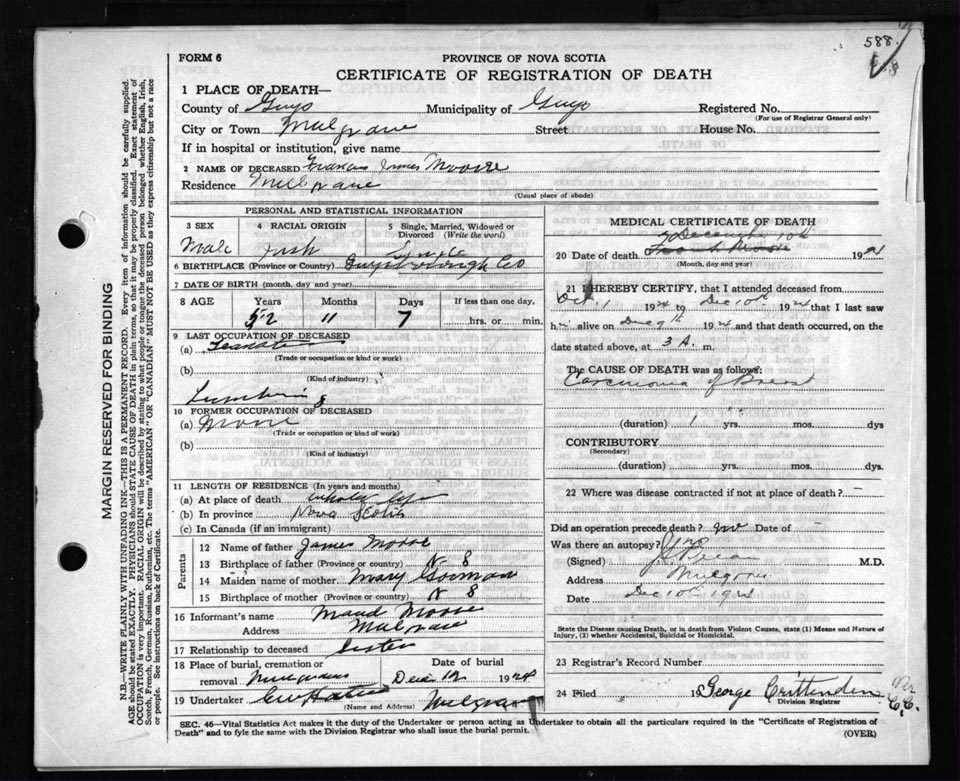 588.
FORM 6
PROVINCE OF NOVA SCOTIA
CERTIFICATE OF REGISTRATION OF DEATH
1 PLACE OF DEATH—
County of Guys Municipality of Guys Registered No.
(For use of Registrar General only)
City or Town Mulgrave Street House No.
If in hospital or institution, give name
2 NAME OF DECEASED Francis James Moore
Residence Mulgrave
(Usual place of abode)
PERSONAL AND STATISTICAL INFORMATION
3 SEX 4 RACIAL ORIGIN 5 Single, Married, Widowed or Divorced (Write the word)
Male Irish Single
6 BIRTHPLACE (Province or Country) Guysborough Co
7 DATE OF BIRTH (month, day and year)
8 AGE Years Months Days If less than one day,
52 11 7 hrs. or min.
9 LAST OCCUPATION OF DECEASED
(a)
(Trade or occupation or kind or work)
(b)
(Kind of industry)
Lumbering
10 FORMER OCCUPATION OF DECEASED
(a)
(Trade or occupation or kind of work)
(b)
(Kind of industry)
11 LENGTH OF RESIDENCE (In years and months)
(a) At place of death whole life
(b) In province Nova Scotia
(c) In Canada (if an immigrant)
Parents
12 Name of father James Moore
13 Birthplace of father (Province or country) N S
14 Maiden name of mother Mary Gorman
15 Birthplace of mother (Province or country) N S
16 Informant's name Maud Moore
Address Mulgrave
17 Relationship to deceased Sister
18 Place of burial, cremation or removal Mulgrave Date of burial Dec 12 1924
19 Undertaker Mulgrave
(Name and Address)
MEDICAL CERTIFICATE OF DEATH
December 10th
20 Date of death 192
(Month, day and year)
21 I HEREBY CERTIFY, that I attended deceased from
Oct 1 1924 to Dec 10th 1924 that I last saw
h alive on Dec 9th 1924 and that death occurred, on the
date stated above, at 3 A. m.
The CAUSE OF DEATH was as follows:
Carcinoma of Breast
(duration) 1 yrs. mos. dys
CONTRIBUTORY
(Secondary)
(duration) yrs. mos. dys.
22 Where was disease contracted if not at place of death?
Did an operation precede death? no Date of
Was there an autopsy? no
(Signed) M.D.
Address Mulgrave
Date Dec 10th 1924
State the Disease causing Death, or in death from Violent Causes, state (1) Means and Nature of
Injury, (2) whether Accidental, Suicidal or Homicidal.
23 Registrar's Record Number
24 Filed George Crittenden Per C.C.
Division Registrar
SEC. 46—Vital Statistics Act makes it the duty of the Undertaker or person acting as Undertaker to obtain all the particulars required in the "Certificate of Registration of
Death" and to fyle the same with the Division Registrar who shall issue the burial permit.
(OVER)
MARGIN RESERVED FOR BINDING
N.B.—WRITE PLAINLY WITH UNFADING INK—THIS IS A PERMANENT RECORD. Every item of information should be carefully supplied.
AGE should be stated EXACTLY. PHYSICIANS should STATE CAUSE OF DEATH in plain terms, so that it may be properly classified. Exact statement of
OCCUPATION is very important. RACIAL ORIGIN will be described by stating to what people or tongue the deceased person belonged whether English, Irish,
Scotch, French, German, Russian, Ruthenian, etc. The terms "AMERICAN" OR "CANADIAN" MUST NOT BE USED as they express citizenship but not a race
or people. See instructions on back of Certificate.